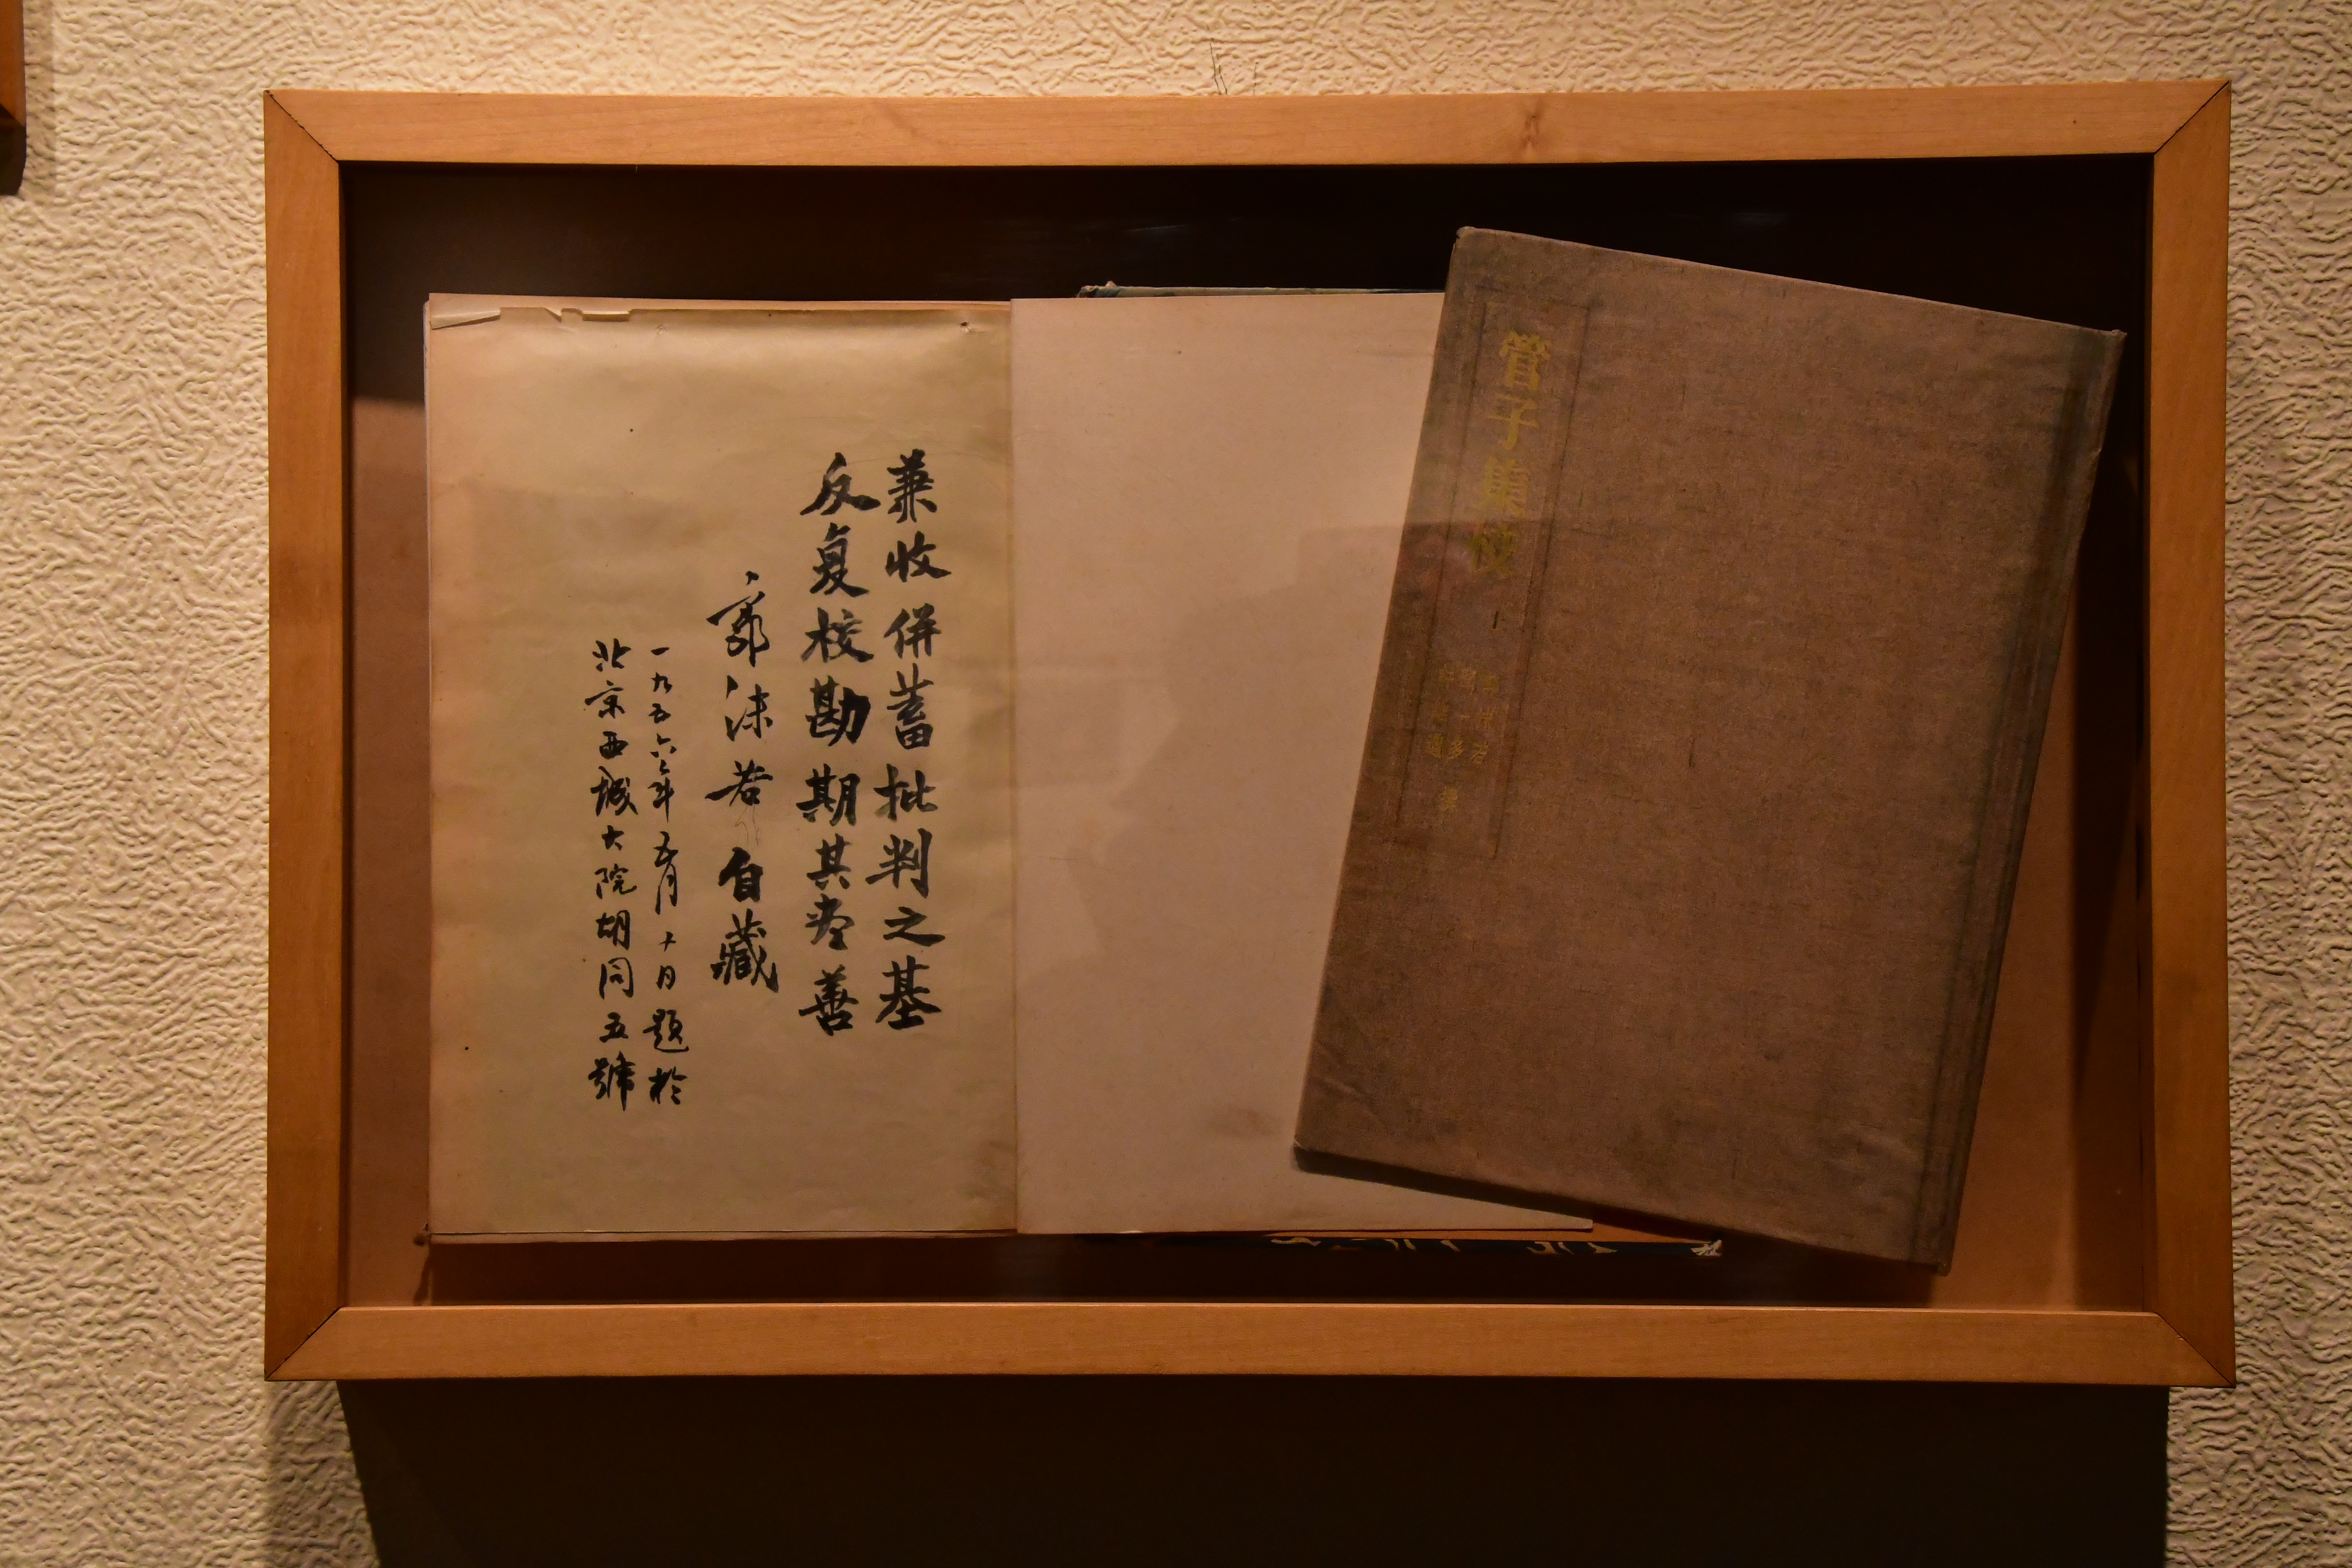 管子集校
郭沫若
聞一多
許維遹
撰
兼收併蓄批判之基
反复校勘期其尽善
郭沫若自藏
一九五六年五月十日題於
北京西城大院胡同五號